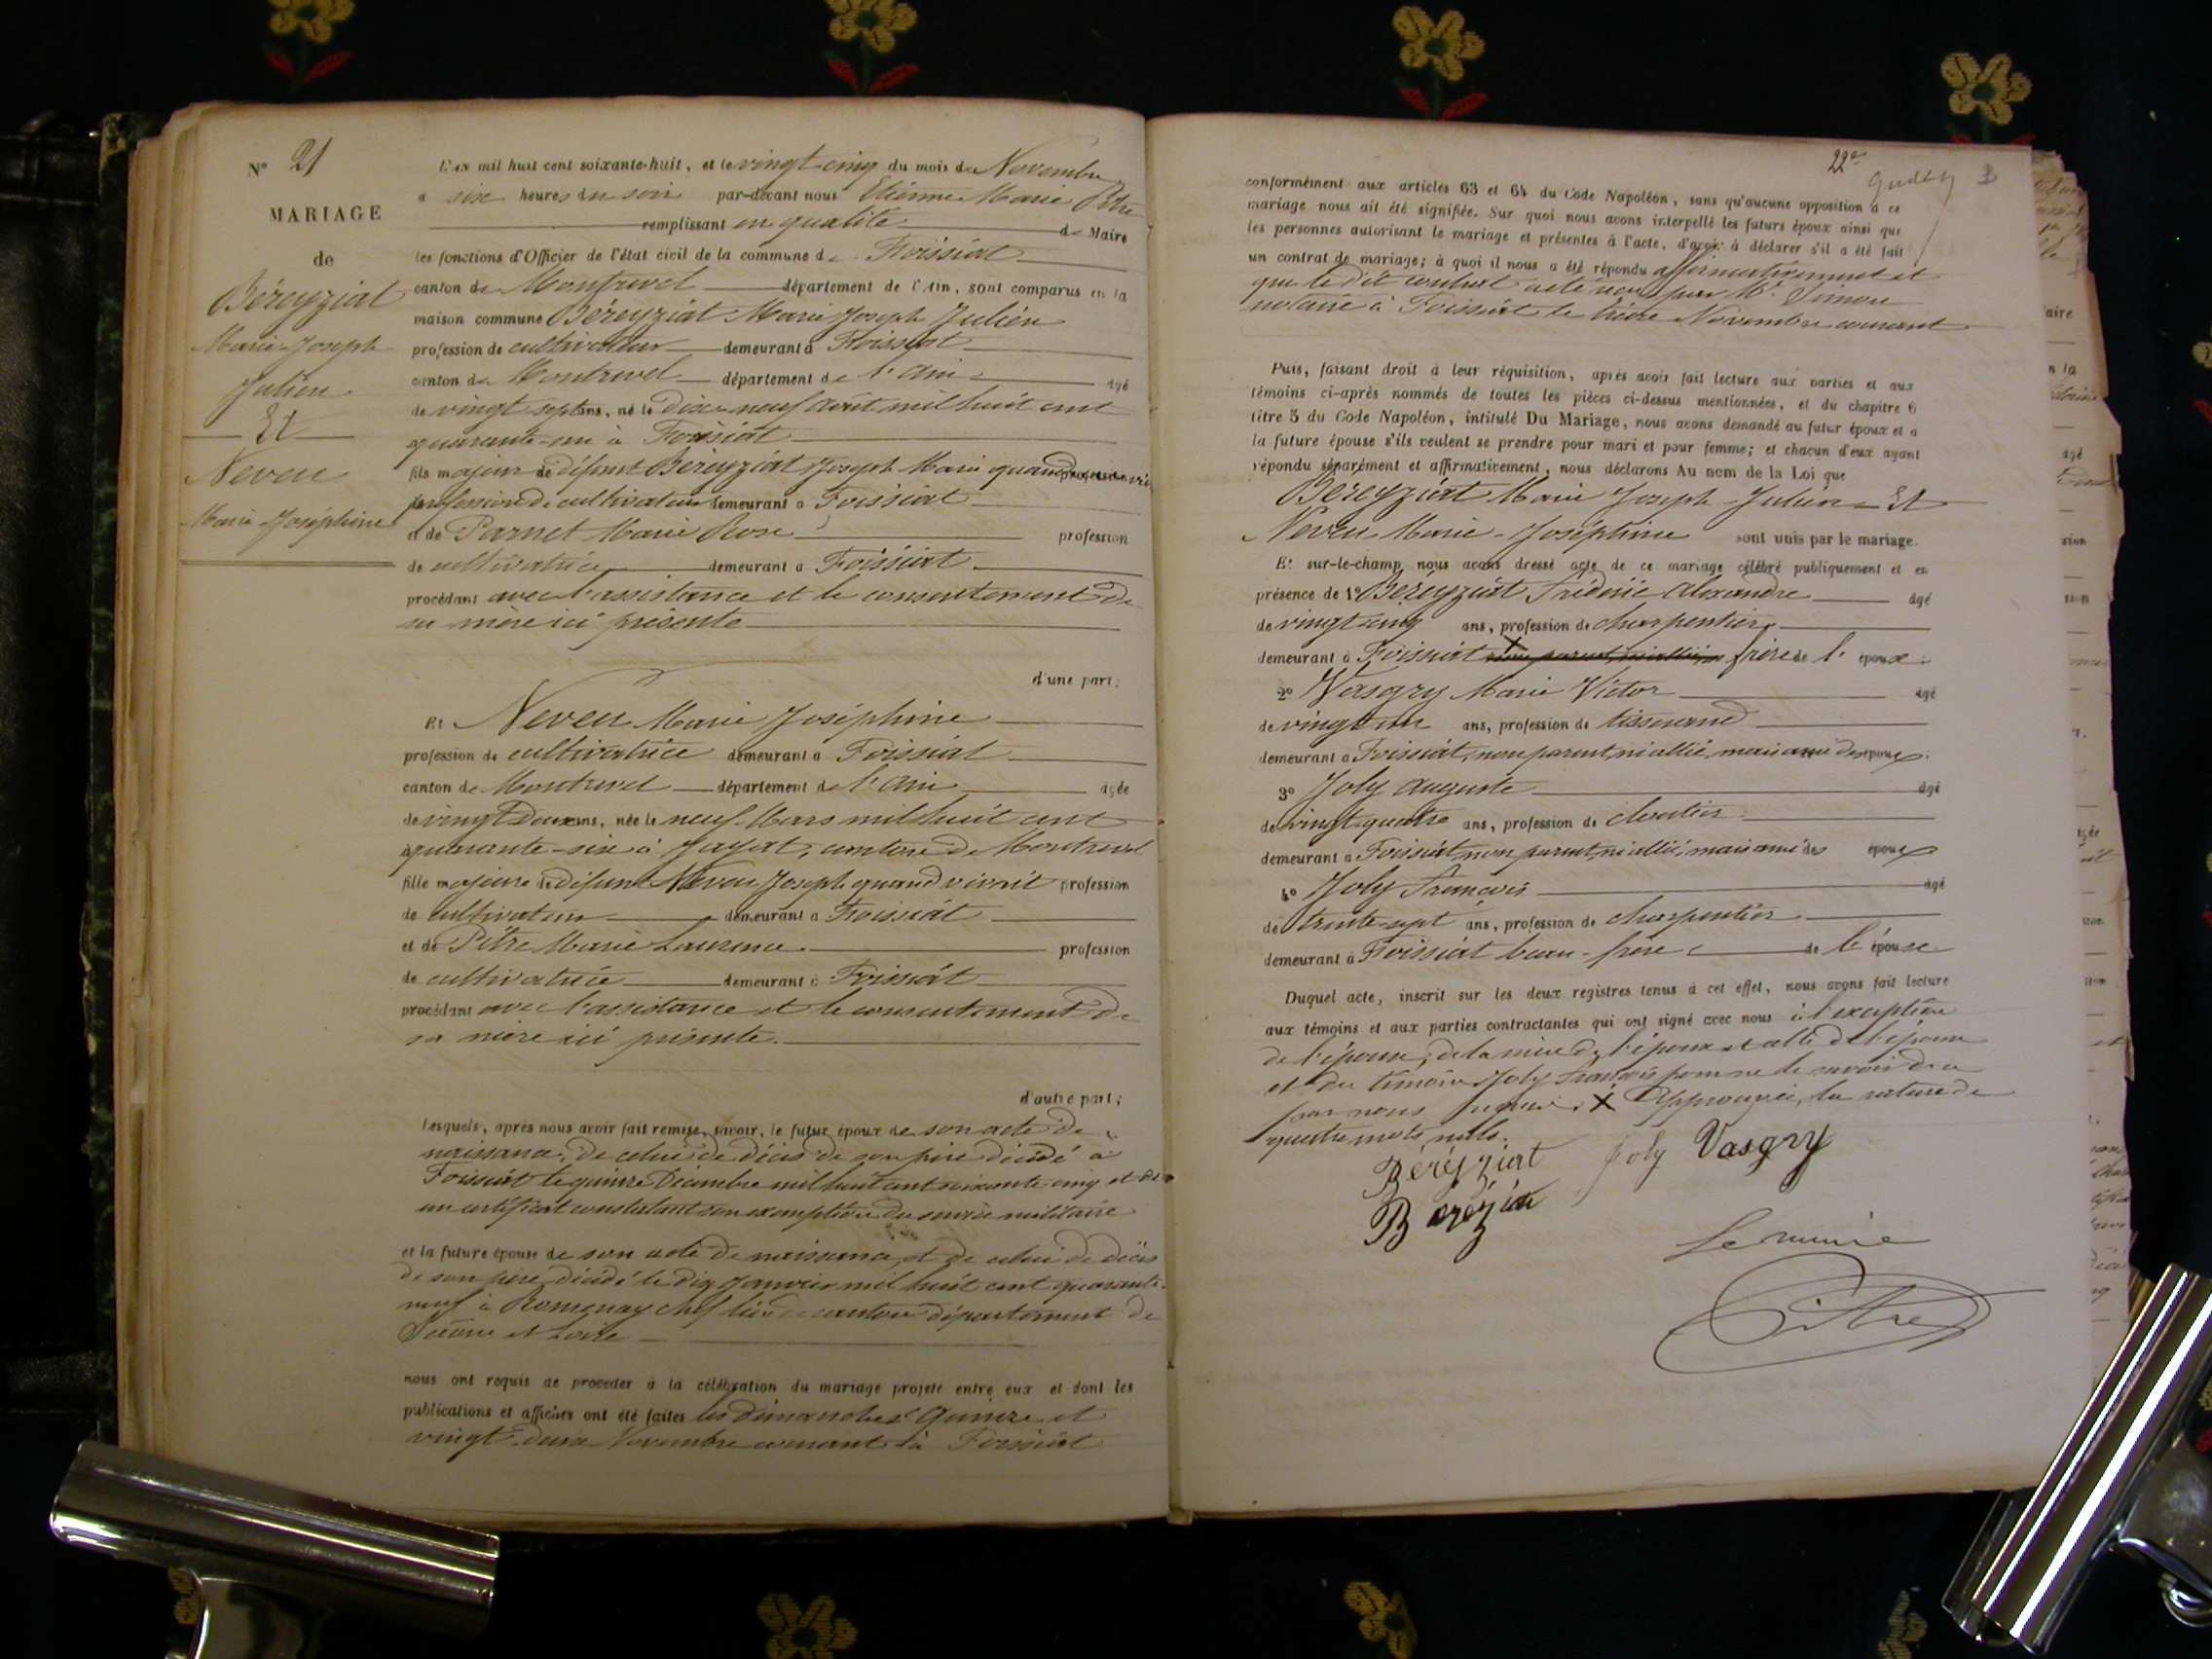 N° 21
MARIAGE
de
Béreyziat
Marie-Joseph
Julien
Et
Neveu
Marie-Joséphine
L'an mil huit cent soixante-huit, et le vingt-cinq du mois de Novembre
à six heures du soir par-devant nous Etienne Marie Pitre
remplissant en qualité de Maire
les fonctions d'Officier de l'état civil de la commune de Foissiat
canton de Montrevel département de l'Ain, sont comparus en la
maison commune Béreyziat Marie Joseph Julien
profession de cultivateur demeurant à Foissiat
canton de Montrevel département de l'Ain âgé
de vingt sept ans, né le dix-neuf août mil huit cent
quarante-un à Foissiat
fils majeur de défunt Béreyziat Joseph Marie quand
profession de cultivateur demeurant à Foissiat
et de Parnet Marie Rose profession
de cultivatrice demeurant à Foissiat
procédant avec l'assistance et le consentement de
sa mère ici présente
d'une part;
Et Neveu Marie Joséphine
profession de cultivatrice demeurant à Foissiat
canton de Montrevel département de l'Ain âgée
de vingt-deux ans, née le neuf Mars mil huit cent
quarante-six à Jayat, canton de Montrevel
fille majeure de défunt Neveu Joseph quand vivait profession
de cultivateur demeurant à Foissiat
et de Pitre Marie Laurence profession
de cultivatrice demeurant à Foissiat
procédant avec l'assistance et le consentement de
sa mère ici présente.
d'autre part;
Lesquels, après nous avoir fait remise, savoir, le futur époux de son acte de
naissance, de celui de décès de son père décédé à
Foissiat le quinze Décembre mil huit cent soixante-cinq et
un certificat constatant son exemption du service militaire
et la future épouse de son acte de naissance, et de celui de décès
de son père, décédé le dix Janvier mil huit cent quarante-
neuf à Romenay chef lieu de canton département de
Saône et Loire
nous ont requis de procéder à la célébration du mariage projeté entre eux et dont les
publications et affiches ont été faites les dimanches quinze et
vingt-deux Novembre courant à Foissiat
22e
conformément aux articles 63 et 64 du Code Napoléon, sans qu'aucune opposition à ce
mariage nous ait été signifiée. Sur quoi nous avons interpellé les futurs époux ainsi que
les personnes autorisant le mariage et présentes à l'acte, d'avoir à déclarer s'il a été fait
un contrat de mariage; à quoi il nous a été répondu affirmativement et
que le dit contrat a été reçu par Me Simon
notaire à Foissiat le treize Novembre courant
Puis, faisant droit à leur réquisition, après avoir fait lecture aux parties et aux
témoins ci-après nommés de toutes les pièces ci-dessus mentionnées, et du chapitre 6
titre 5 du Code Napoléon, intitulé Du Mariage, nous avons demandé au futur époux et à
la future épouse s'ils veulent se prendre pour mari et pour femme; et chacun d'eux ayant
répondu séparément et affirmativement, nous déclarons Au nom de la Loi que
Béreyziat Marie Joseph Julien Et
Neveu Marie-Joséphine sont unis par le mariage.
Et sur-le-champ nous avons dressé acte de ce mariage célébré publiquement et en
présence de 1° Béreyziat Fréderic Alexandre âgé
de vingt-cinq ans, profession de charpentier
demeurant à Foissiat X non parent, ni allié, frère de l' époux.
2° Vasgry Marie Victor âgé
de vingt-un ans, profession de tisserand
demeurant à Foissiat, non parent, ni allié, mais ami des époux.
3° Joly Auguste âgé
de vingt-quatre ans, profession de
demeurant à Foissiat, non parent, ni allié, mais ami des époux
4° Joly François âgé
de trente-sept ans, profession de charpentier
demeurant à Foissiat beau-frère de l' épouse
Duquel acte, inscrit sur les deux registres tenus à cet effet, nous avons fait lecture
aux témoins et aux parties contractantes qui ont signé avec nous à l'exception
de l'épouse, de la mère de l'époux et celle de l'épouse
et du témoin Joly François pour ne le savoir de ce
par nous requis. X Approuvée, la rature de
quatre mots nuls.
Béréyziat Joly Vasgry
Béréyziat
Le maire
Pitre